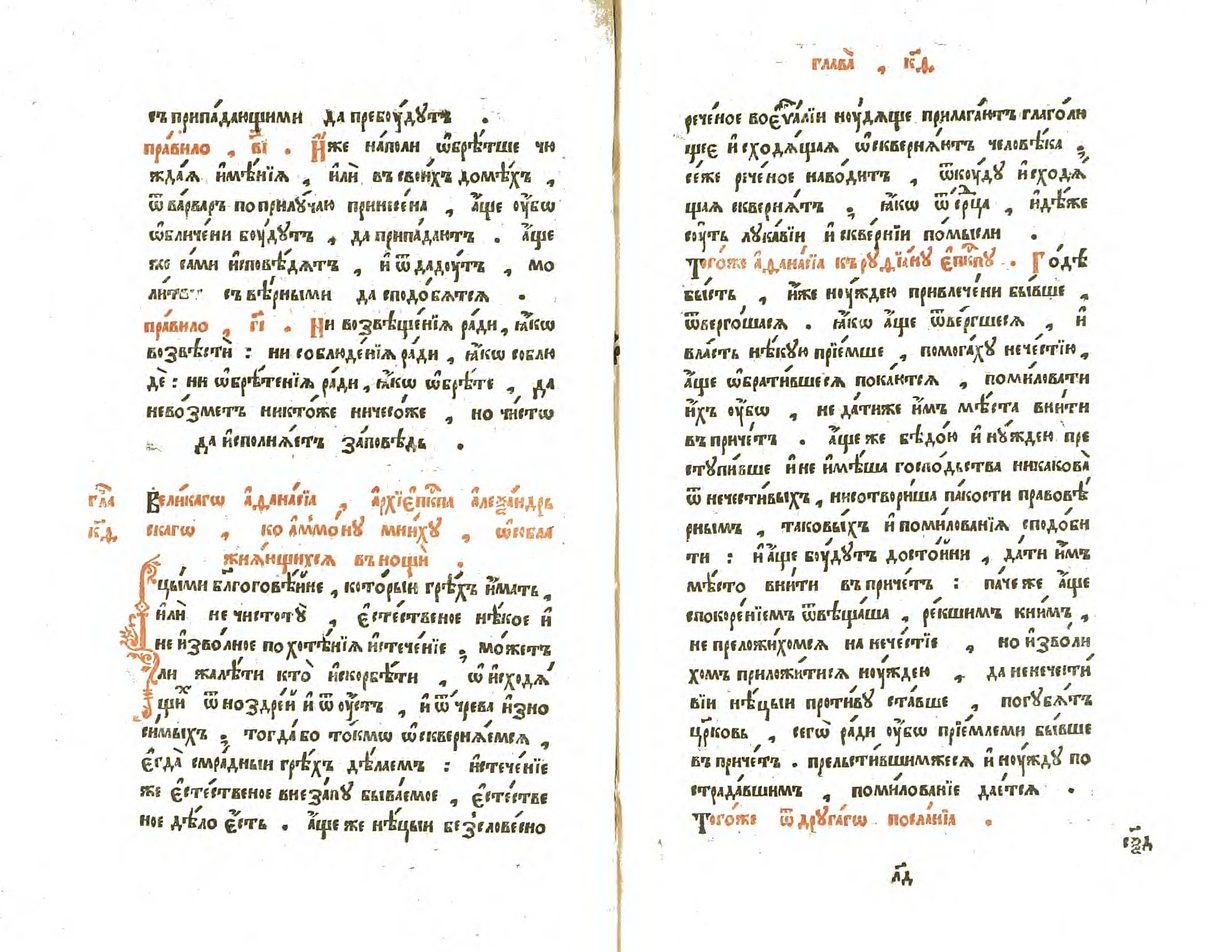 съприпа́дающими да пребꙋ́дутъ .
пра́вило , в҃і . И҆́же на́поли ѡ҆брѣ́тше чю
жда́ѧ и҆мѣ́нїѧ , и҆лѝ въ свои́хъ домѣ́хъ ,
ѿ ва́рваръ по прилꙋ́чаю принесе́на , а҆́ще ᲂу҆́бѡ
ѡ҆бличе́ни бꙋ́дутъ , да припа́даютъ . а҆́ще
же са́ми и҆сповѣ́дѧтъ , и҆ ѿдадꙋ́тъ , мо
ли́твъ съ вѣ́рными да сподо́бѧтсѧ .
пра́вило , г҃і . Ни возвѣще́нїѧ ра́ди, ꙗ҆́кѡ
возвѣстѝ : ни соблюде́нїѧ ра́ди , ꙗ҆́кѡ соблю
дѐ : ни ѡ҆брѣ́тенїѧ ра́ди, ꙗ҆́кѡ ѡ҆брѣ́те , да
невозметъ никто́же ничесо́же , но чи́стѡ
да и҆сполнѧ́етъ за́повѣдь .
гла̀ к҃д
Вели́кагѡ а҆ѳана́сїа , а҆рхїе҆пⷭ҇кпа а҆леѯа́ндрь
скагѡ , ко а҆ммо́нꙋ мни́хꙋ , ѡ҆собла
жнѧ́ющихсѧ въ нощѝ .
І҆цы́ми бл҃гоговѣ́йне , кото́рыи грѣ́хъ и҆́мать ,
и҆лѝ не чистотꙋ̀ , е҆сте́ственое нѣ́кое и҆
не и҆зво́лное по хотѣ́нїѧ и҆стече́нїе , мо́жетъ
ли жалѣ́ти кто̀ и҆скорбѣ́ти , ѡ҆ и҆сходѧ́
щиⷯ ѿ ноздре́й и҆ ѿ ᲂу҆́стъ , и҆ ѿ чре́ва и҆зно
си́мыхъ ; тогда́ бо то́кмѡ ѡ҆сквернѧ́емсѧ ,
е҆гда̀ смра́дныи грѣ́хъ дѣ́лаемъ : и҆стече́нїе
же е҆сте́ственое внеза́пꙋ быва́емое , е҆сте́стве
ное дѣ́ло е҆́сть . а҆́ще же нѣ́цыи безслове́сно
глава̀ , к҃д .
рече́ное во е҆ѵⷢ҇алїи нꙋ́дѧще прилага́ютъ глаго́лю
щее и҆сходѧ́щаѧ ѡ҆сквернѧ́ютъ человѣ́ка ;
се́же рече́ное наво́дитъ , ѿкꙋ́дꙋ и҆сходѧ́
щаѧ сквернѧ́тъ ; ꙗ҆́кѡ ѿ се́рⷣца , и҆дѣ́же
сꙋ́ть лꙋка́вїи и҆ скве́рнїи по́мысли .
Того́же а҆ѳана́сїа къ рꙋдїа́нꙋ е҆пⷭ҇кпꙋ . Годѣ̀
бы́сть , и҆́же нꙋ́ждею привлече́ни бы́вше ,
ѿверго́шасѧ . ꙗ҆́кѡ а҆́ще ѿве́ргшесѧ , и҆
вла́сть нѣ́кꙋю прїе́мше , помога́хꙋ нече́стїю ,
а҆́ще ѡ҆брати́вшесѧ пока́ютсѧ , поми́ловати
и҆́хъ ᲂу҆́бѡ , не да́тиже и҆̀мъ мѣ́ста вни́ти
въ при́четъ . а҆́ще же бѣдо́ю и҆ нꙋ́ждею пре
стꙋпи́вше и҆ не и҆мѣ́ша госпо́дьства никаковà
ѿ нечести́выхъ , ни сотвори́ша па́кости правовѣ́
рнымъ , таковы́хъ и҆ поми́лованїѧ сподо́би
ти : и҆ а҆́ще бꙋ́дутъ досто́йни , да́ти и҆̀мъ
мѣ́сто вни́ти въ при́четъ : па́че же а҆́ще
спокоре́нїемъ ѿвѣща́ша , ре́кшимъ кни́мъ ,
не преложи́хомсѧ на нече́стїе , но и҆зво́ли
хомъ приложи́тисѧ нꙋ́ждею , да не нечести́
вїи нѣ́цыи проти́вꙋ ста́вше , погꙋ́бѧтъ
цр҃ковь , сегѡ̀ ра́ди ᲂу҆́бѡ прїе́млеми бы́вше
въ при́четъ . прельсти́вшимжесѧ и҆ нꙋ́ждꙋ по
страда́вшимъ , поми́лованїе дае́тсѧ .
Того́же ѿ дрꙋга́гѡ посла́нїа .
л҃д